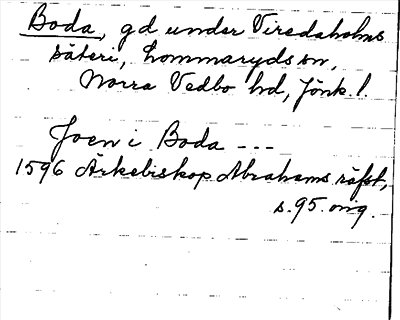 Boda, gd under Viredaholms
säteri, Lommaryds sn,
Norra Vedbo hd, Jönk. l.
Joen i Boda ---
1596 Ärkebiskop Abrahams räfst,
s. 95. orig.